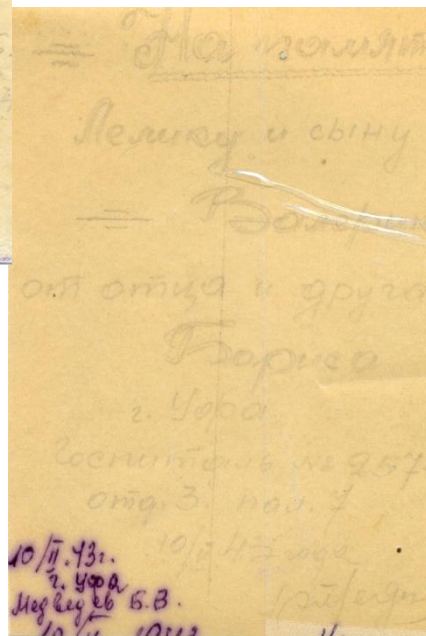 = На памят
Лелику и сыну
= Валерик
от отца и друга
Бориса
г. Уфа
Госпиталь № 257
отд. 3. пал. 7
10/II 43 года
10/II.43г.
г. Уфа
Медведев Б.В.